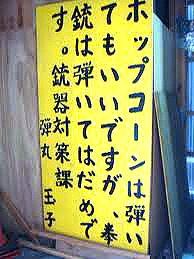 ホップコーンは弾い
てもいいですが、拳
銃は弾いてはだめで
す。銃器対策課
弾丸 玉子